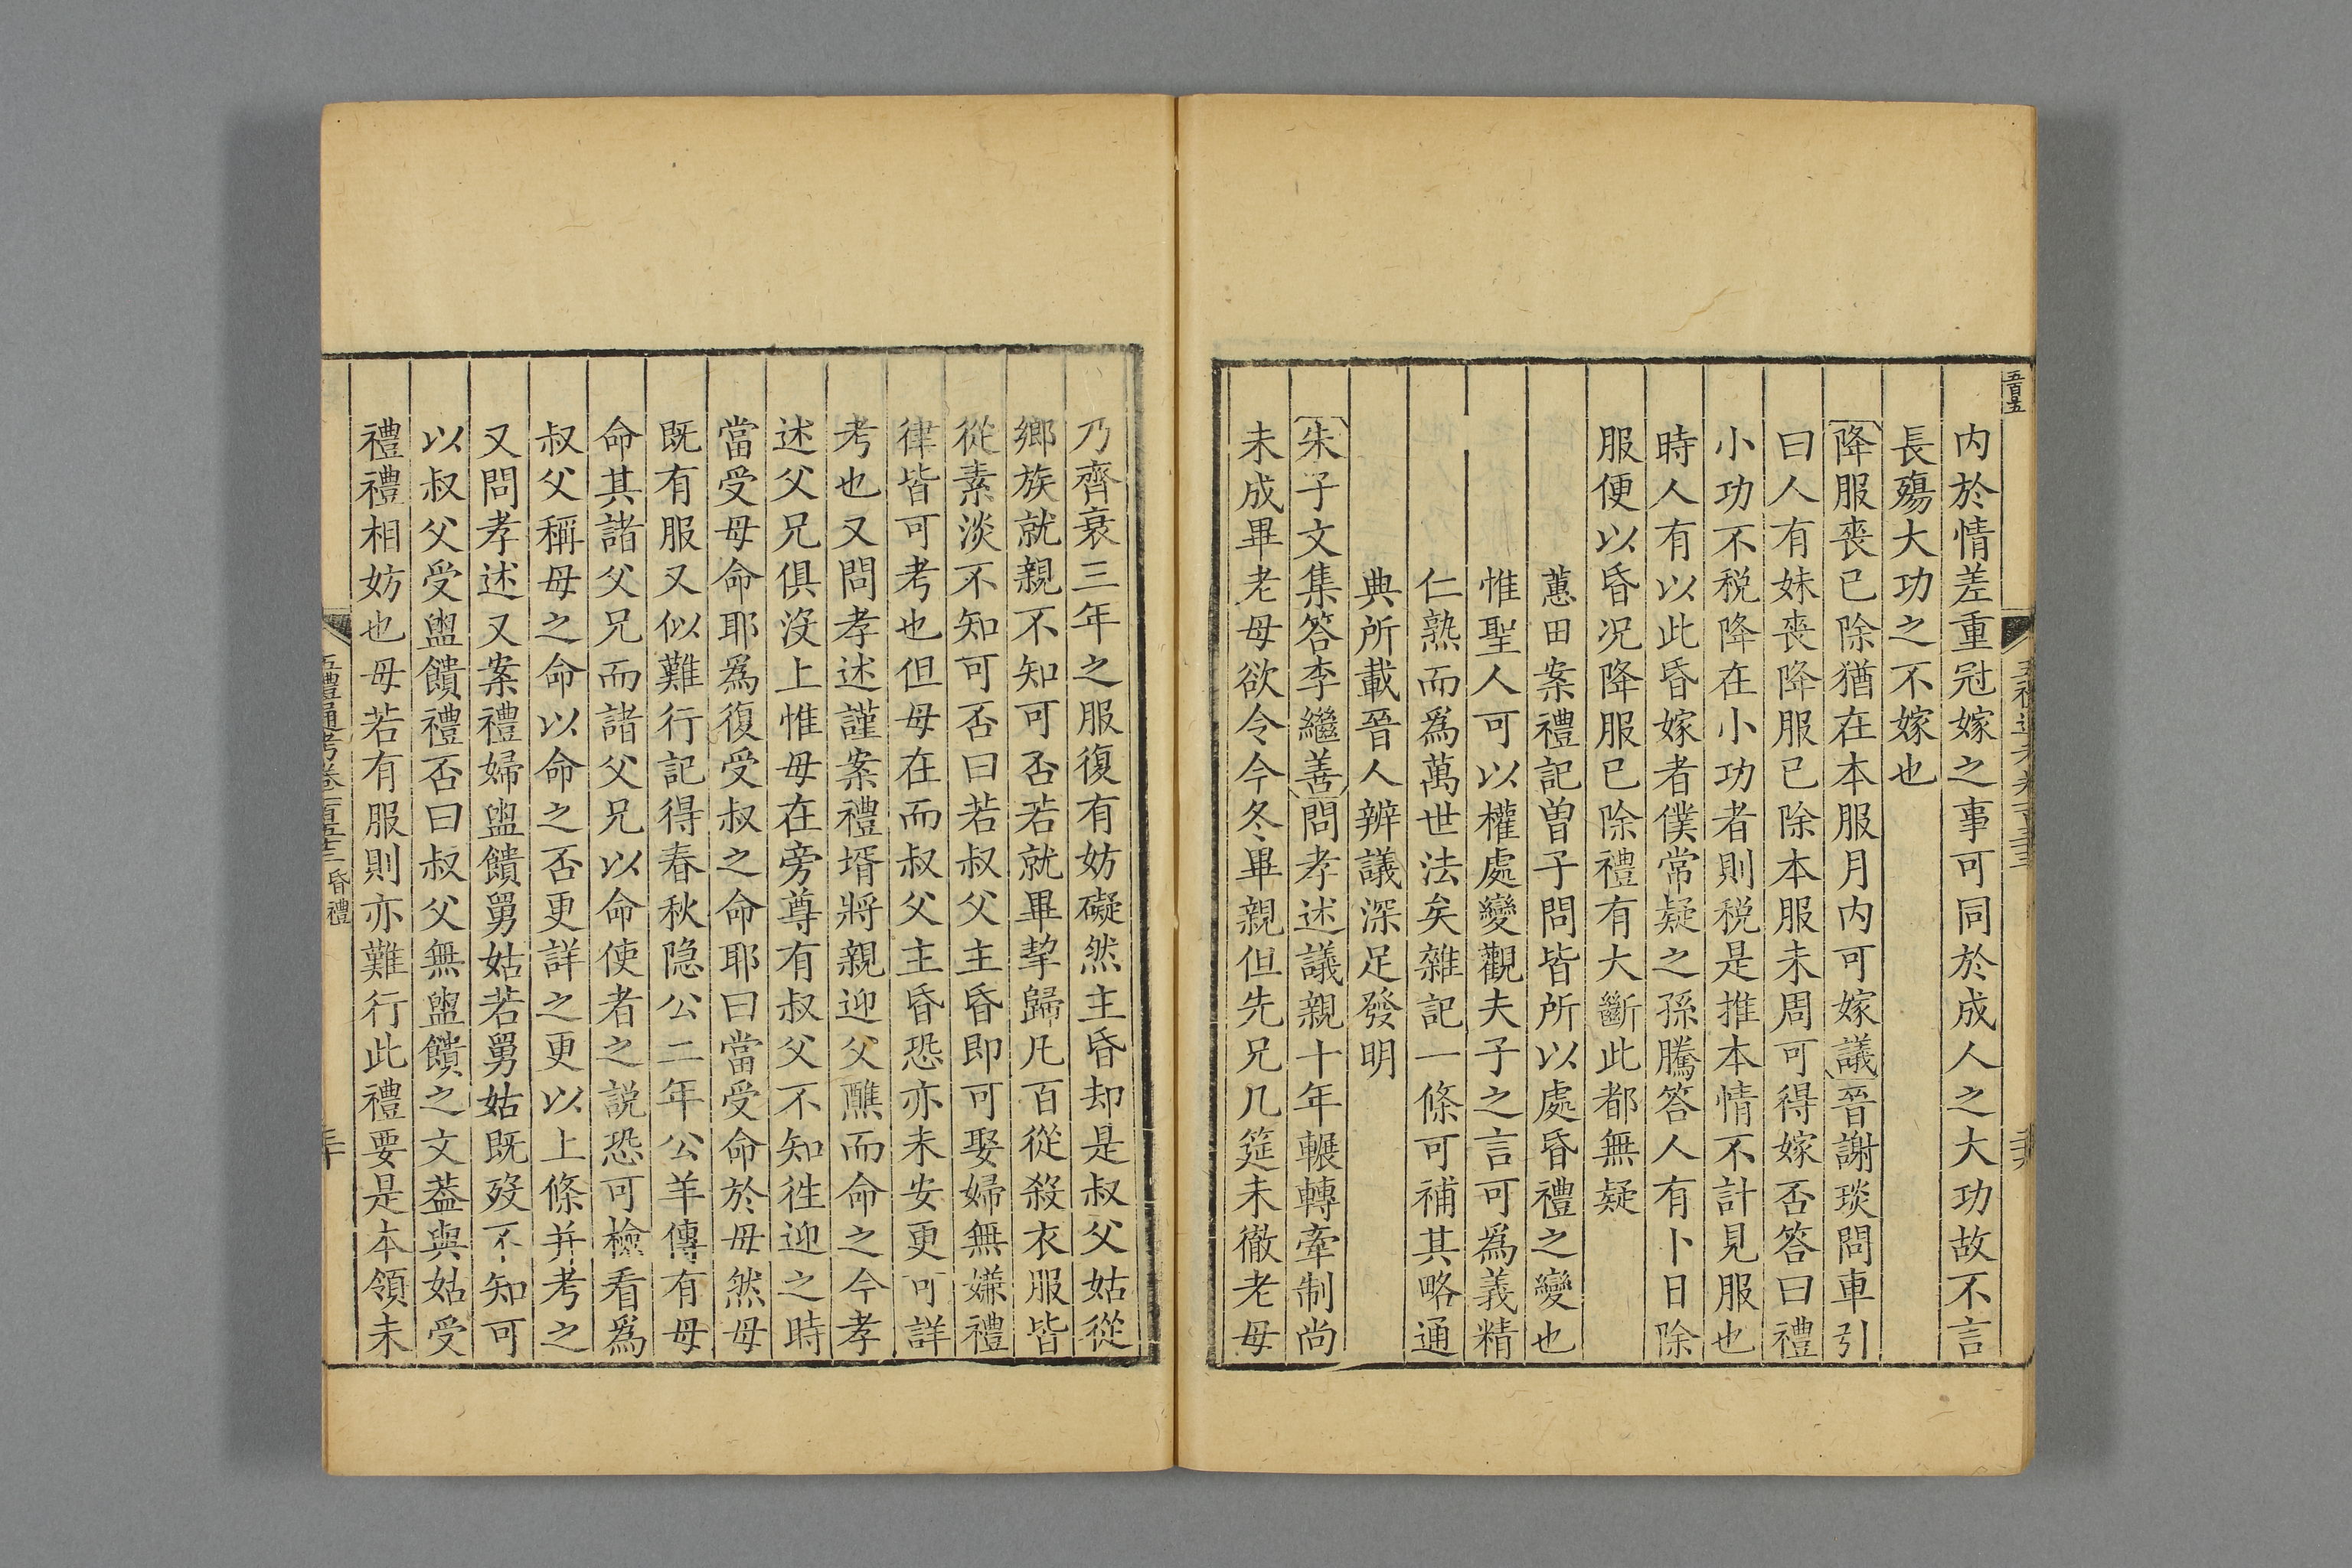 五百五
内於情差重冠嫁之事可同於成人之大功故不言
長殤大功之不嫁也
降服喪已除猶在本服月内可嫁議晉謝琰問車引
曰人有妹喪降服已除本服未周可得嫁否答曰禮
小功不税降在小功者則税是推本情不計見服也
時人有以此昏嫁者僕常疑之孫騰答人有卜日除
服便以昏况降服已除禮有大斷此都無疑
蕙田案禮記曽子問皆所以處昏禮之變也
惟聖人可以權處變觀夫子之言可為義精
仁熟而為萬世法矣雜記一條可補其略通
典所載晉人辨議深足發明
朱子文集答李繼善問孝述議親十年輾轉牽制尚
未成畢老母欲令今冬畢親但先兄几筵未徹老母
乃齊衰三年之服復有妨礙然主昏却是叔父姑從
鄉族就親不知可否若就畢挈歸凡百從殺衣服皆
從素淡不知可否曰若叔父主昏即可娶婦無嫌禮
律皆可考也但母在而叔父主昏恐亦未安更可詳
考也又問孝述謹案禮壻將親迎父醮而命之今孝
述父兄俱没上惟母在旁尊有叔父不知徃迎之時
當受母命耶為復受叔之命耶曰當受命於母然母
既有服又似難行記得春秋隐公二年公羊傳有母
命其諸父兄而諸父兄以命使者之説恐可檢看為
叔父稱母之命以命之否更詳之更以上條并考之
又問孝述又案禮婦盥饋舅姑若舅姑既殁不知可
以叔父受盥饋禮否曰叔父無盥饋之文葢與姑受
禮禮相妨也母若有服則亦難行此禮要是本領未
五禮通考卷一百五十三 昏禮